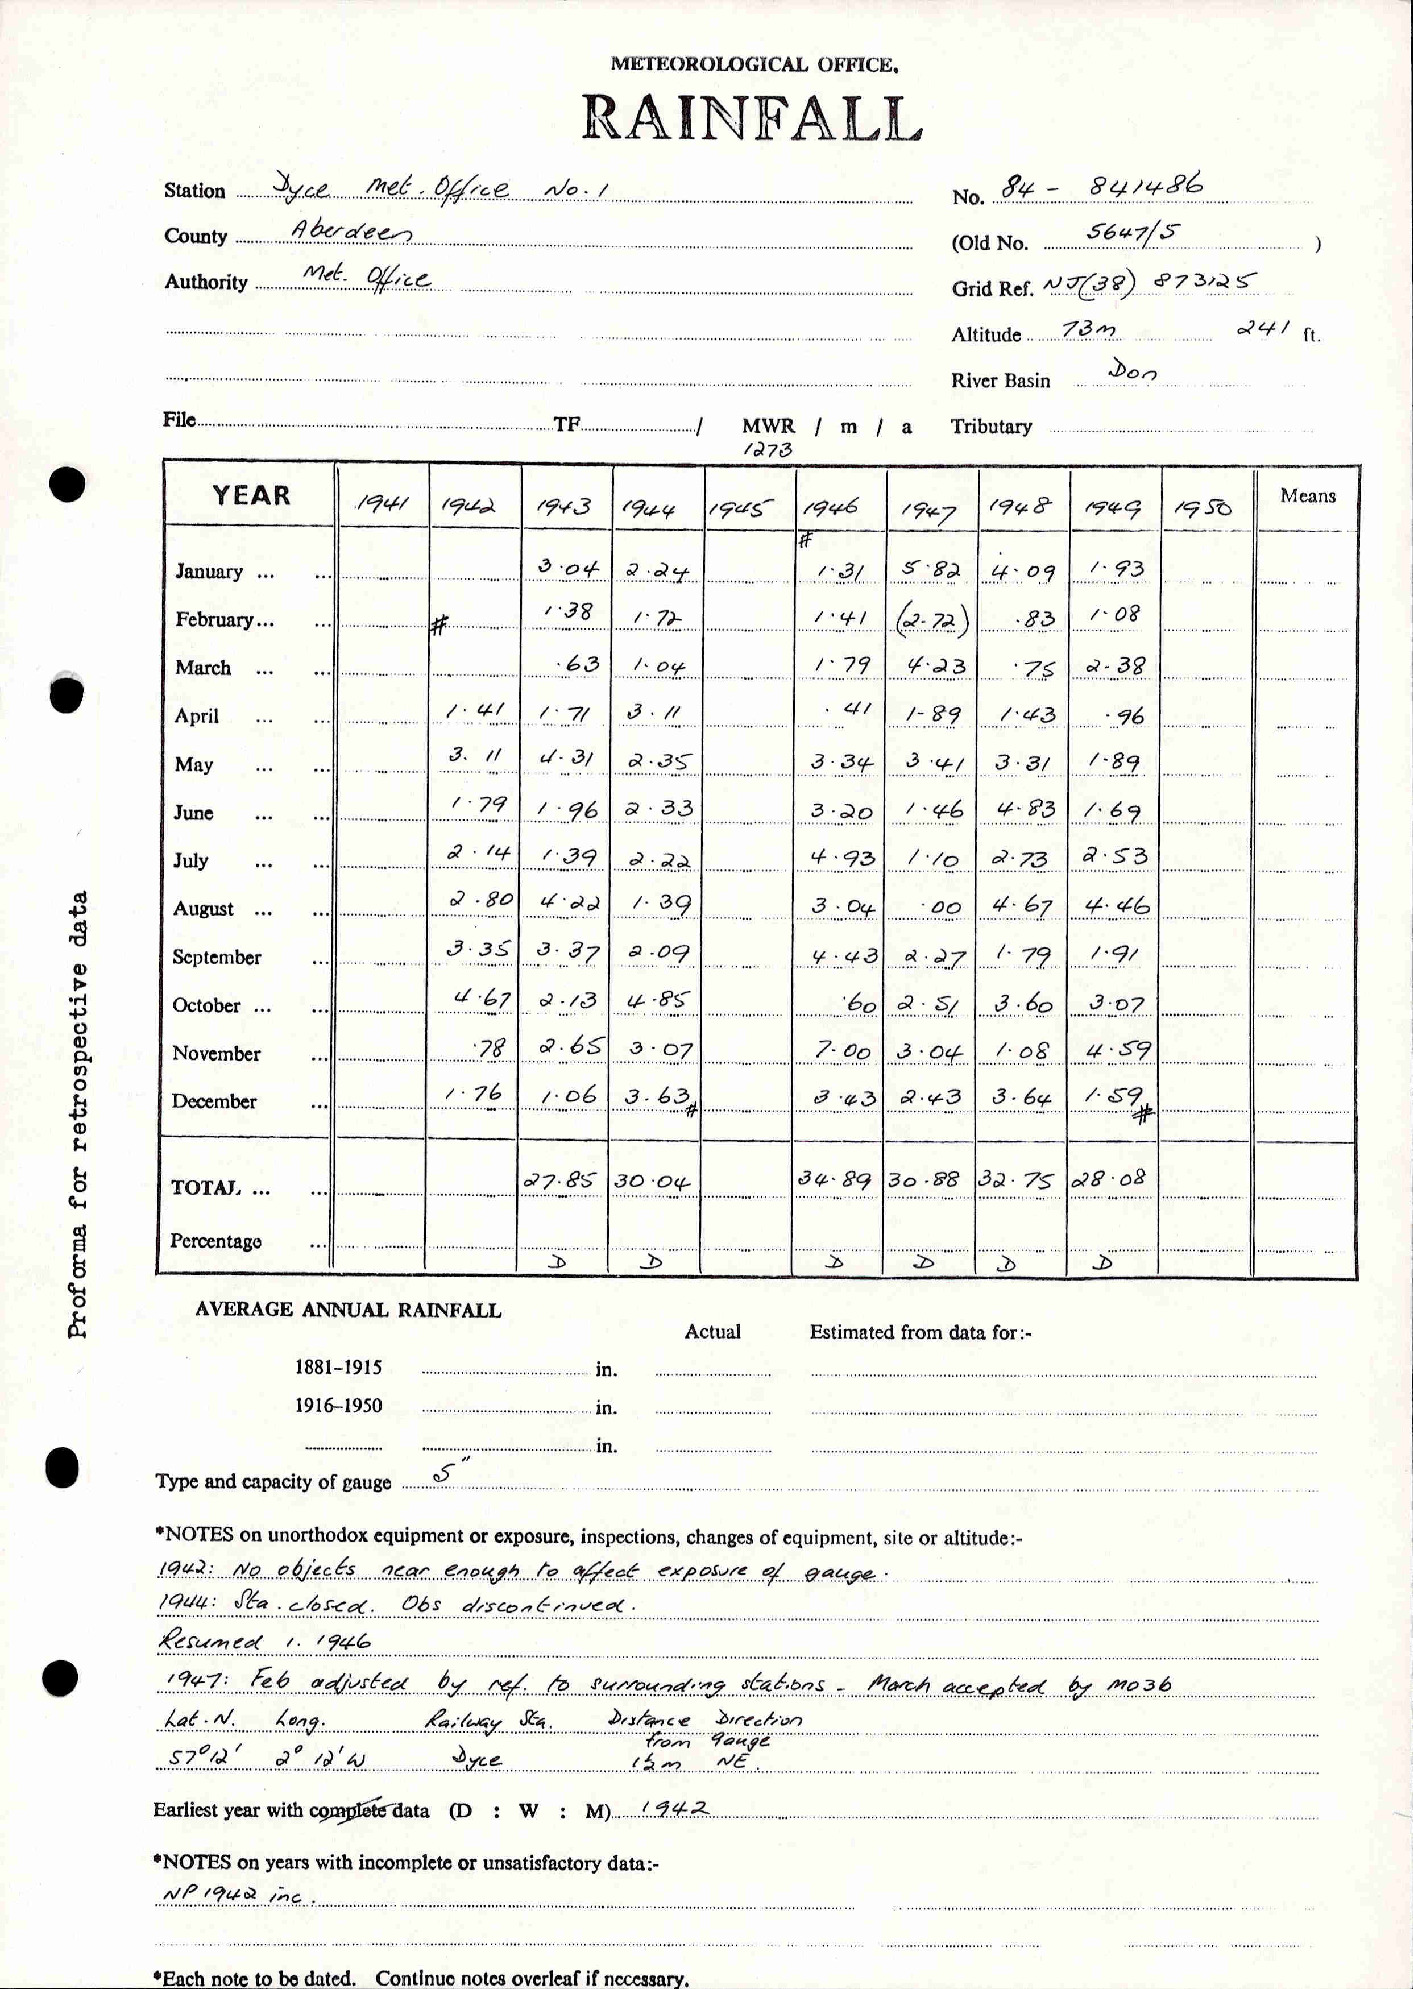 METEOROLOGICAL OFFICE.
RAINFALL
Station Dyce Met. Office No. 1 No. 84 - 841486
County Aberdeen (Old No. 5647/5 )
Authority Met. Office Grid Ref. NJ(38) 873125
Altitude 73m 241 ft.
River Basin Don
File TF / MWR / m / a Tributary
1273
YEAR 1941 1942 1943 1944 1945 1946 1947 1948 1949 1950 Means
#
January ... ... 3.04 2.24 1.31 5.82 4.09 1.93
February... ... # 1.38 1.72 1.41 (2.72) .83 1.08
March ... ... .63 1.04 1.79 4.23 .75 2.38
April ... ... 1.41 1.71 3.11 .41 1.89 1.43 .96
May ... ... 3.11 4.31 2.35 3.34 3.41 3.31 1.89
June ... ... 1.79 1.96 2.33 3.20 1.46 4.83 1.69
July ... ... 2.14 1.39 2.22 4.93 1.10 2.73 2.53
August ... ... 2.80 4.22 1.39 3.04 .00 4.67 4.46
September ... 3.35 3.37 2.09 4.43 2.27 1.79 1.91
October ... ... 4.67 2.13 4.85 .60 2.51 3.60 3.07
November ... .78 2.65 3.07 7.00 3.04 1.08 4.59
December ... 1.76 1.06 3.63 # 3.43 2.43 3.64 1.59 #
TOTAL ... ... 27.85 30.04 34.89 30.88 32.75 28.08
Percentage ...
D D D D D D
Proforma for retrospective data
AVERAGE ANNUAL RAINFALL
Actual Estimated from data for:-
1881-1915 in.
1916-1950 in.
in.
Type and capacity of gauge 5"
*NOTES on unorthodox equipment or exposure, inspections, changes of equipment, site or altitude:-
1942: No objects near enough to affect exposure of gauge.
1944: Sta. closed. Obs discontinued.
Resumed 1. 1946
1947: Feb adjusted by ref. to surrounding stations - March accepted by MO3b
Lat. N. Long. Railway Sta. Distance Direction
from gauge
57°12' 2° 12'W Dyce 1½m NE.
Earliest year with complete data (D : W : M) 1942
*NOTES on years with incomplete or unsatisfactory data:-
NP 1942 inc.
*Each note to be dated. Continue notes overleaf if necessary.